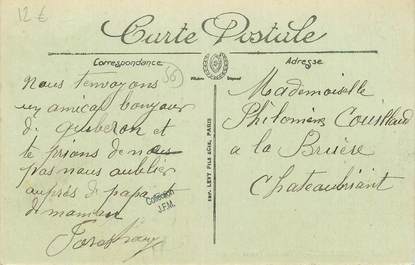 12 €
Carte Postale
Correspondance
Adresse
56
Nous t'envoyons
un amical bonjour
de quiberon et
te prions de nous
pas nous oublier
auprès de papa et
de maman
Collection
J.F.M.
imp. LEVY FILS & Cie, PARIS
Mademoiselle
Philomène
a la Bruère
Chateaubriant